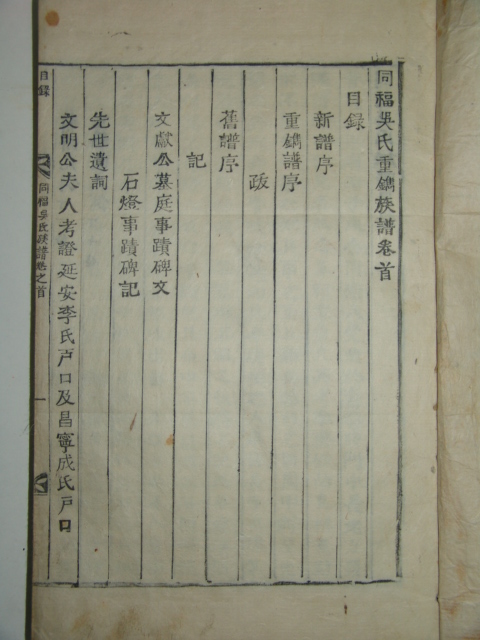 同福吳氏重鐫族譜卷首
目録
新譜序
重鐫譜序
跋
舊譜序
記
文獻公墓庭事蹟碑文
石燈事蹟碑記
先世遺詞
文明公夫人考證延安李氏戶口及昌寧成氏戶口
目録
同福吳氏族譜卷之首
一